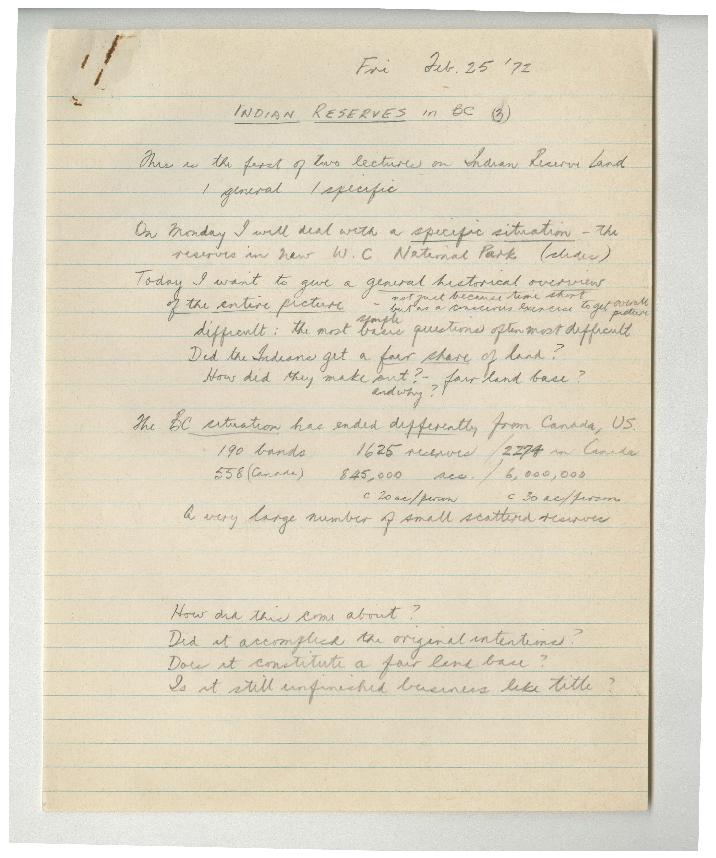 Fri Feb. 25 '72
INDIAN RESERVES in BC (3)
This is the first of two lectures on Indian Reserve Land
1 general 1 specific
On Monday I will deal with a specific situation – the
reserves in new W. C National Park (slides)
Today I want to give a general historical overview
of the entire picture - not just because time short
but as a conscious exercise to get overall picture
simple
difficult : the most basic questions often most difficult
Did the Indians get a fair share of land?
How did they make out? – fair land base?
and why?
The BC situation has ended differently from Canada, US.
190 bands 1625 reserves / 2274 in Canada
558 (Canada) 845,000 acs. / 6,000,000
c 20 ac/person c 30 ac/person
A very large number of small scattered reserves
How did this come about?
Did it accomplish the original intentions?
Does it constitute a fair land base?
Is it still unfinished business like title?